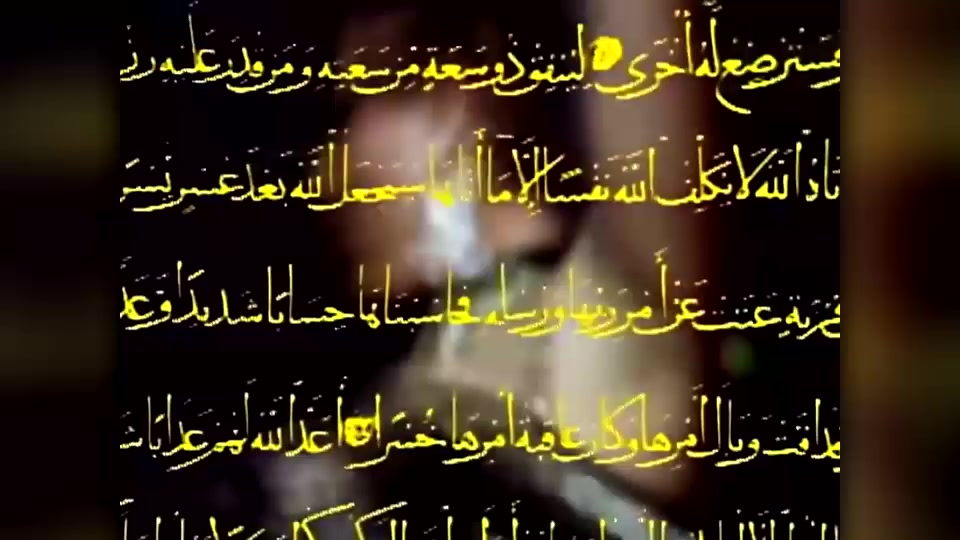 فسترضع له أخرى لينفق ذو سعة من سعته ومن قدر عليه رز
الله لا يكلف الله نفسا إلا ما آتاها سيجعل الله بعد عسر يسر
قرية عتت عن أمر ربها ورسله فحاسبناها حسابا شديدا وعذ
فذاقت وبال أمرها وكان عاقبة أمرها خسرا أعد الله لهم عذابا شـ